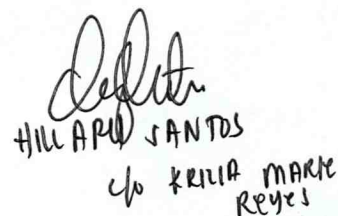 HILLARY SANTOS
c/o KRIZIA MARIE
REYES